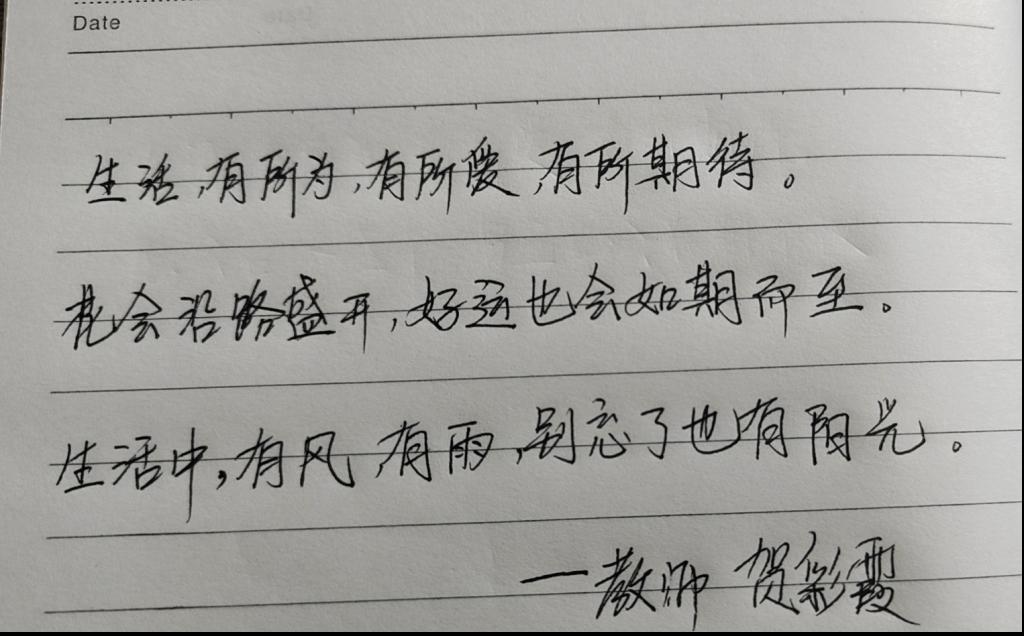 Date
生活,有所为,有所爱,有所期待。
花会沿路盛开,好运也会如期而至。
生活中,有风,有雨,别忘了也有阳光。
—教师 贺彩霞